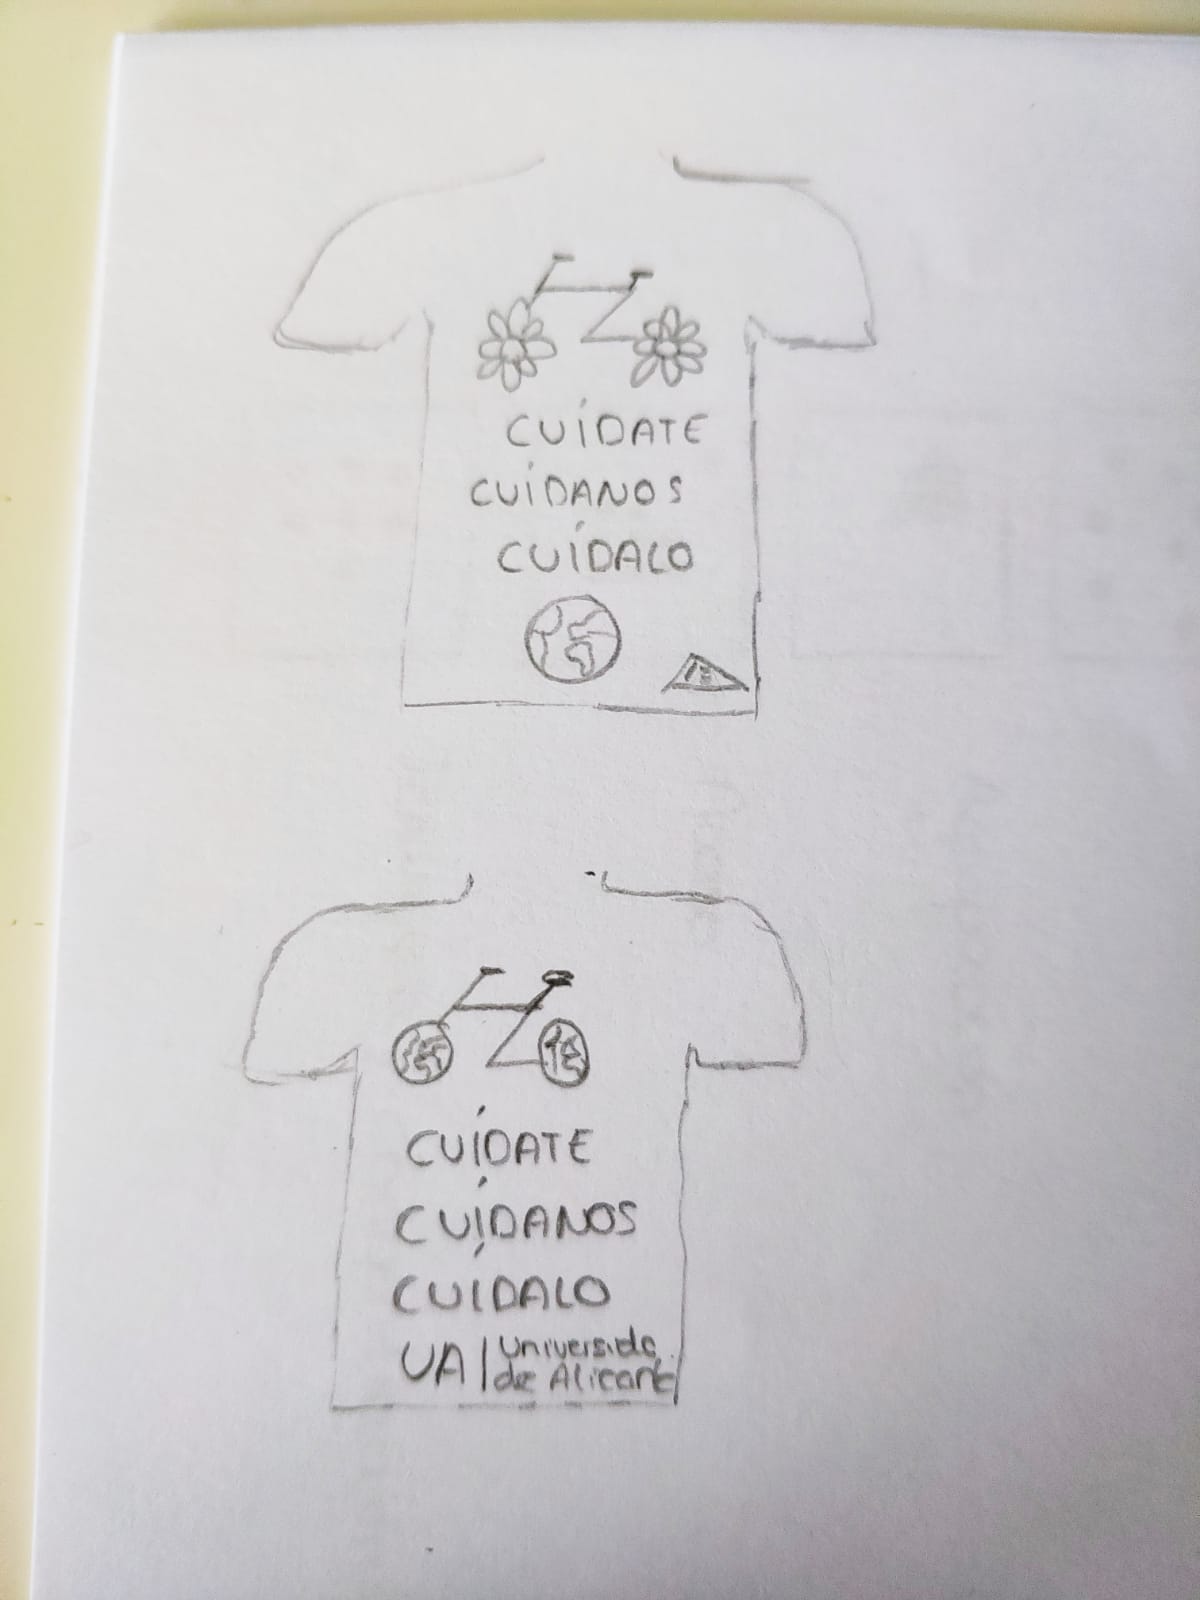 CUÍDATE
CUÍDANOS
CUÍDALO
CUÍDATE
CUÍDANOS
CUÍDALO
UA | Universida
de Alicant